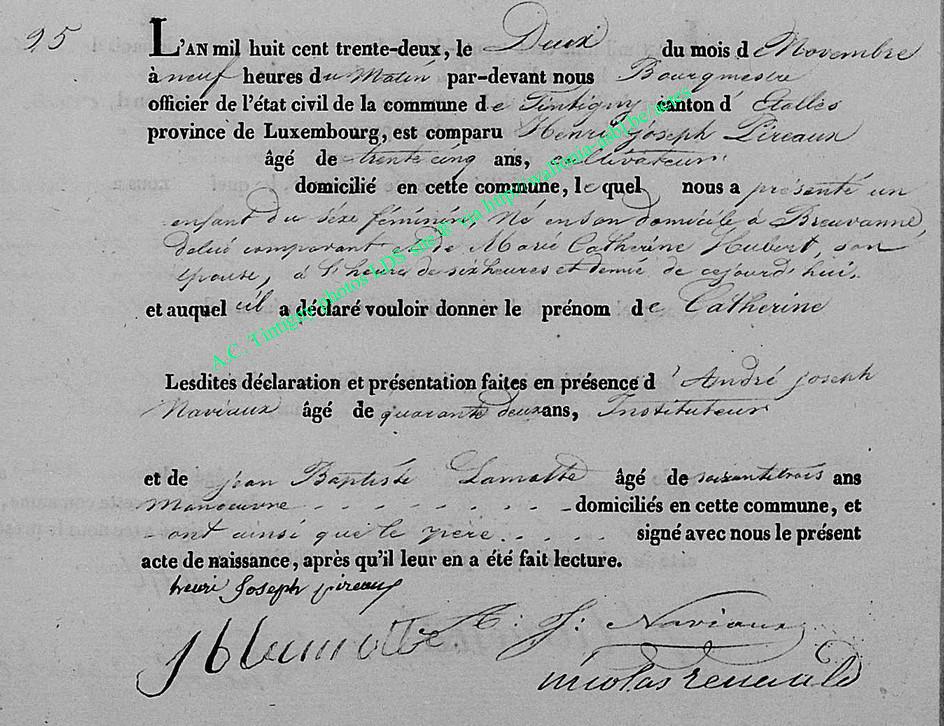 95
L'AN mil huit cent trente-deux, le Deux du mois de Novembre
à neuf heures du Matin par-devant nous Bourgmestre
officier de l'état civil de la commune de Tintigny canton d'Etalles
province de Luxembourg, est comparu Henri joseph Pireaux
âgé de trente cinq ans, cultivateur
domicilié en cette commune, lequel nous a présenté un
enfant du séxe féminin, Né en son domicile à Breuvanne,
delui comparant et de Marie Catherine Hubert son
épouse, à l'heure de six heures et demie de cejourd'hui,
et auquel il a déclaré vouloir donner le prénom de Catherine
Lesdites déclaration et présentation faites en présence d'André joseph
Naviaux âgé de quarante deux ans, Instituteur
et de jean Baptiste Lamotte âgé de soixante trois ans
Manoeuvre - - - - - - - - - domiciliés en cette commune, et
- ont ainsi que le père - - - - - signé avec nous le présent
acte de naissance, après qu'il leur en a été fait lecture.
henri Joseph pireaux
A. J. Naviaux
JB Lamotte
nicolas renauld
A.C. Tintigny photos LDS site & via http://wallonia-asbl.be/actes